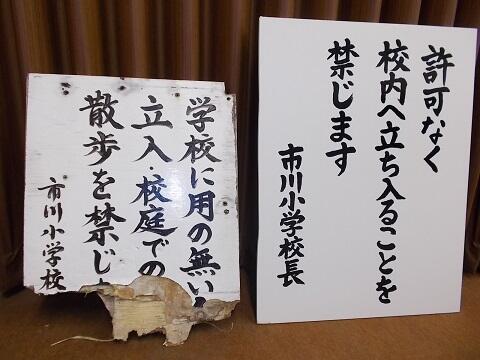 許可なく
校内へ立ち入ることを
禁じます
市川小学校長
学校に用の無い
立入・校庭での
散歩を禁じ
市川小学校